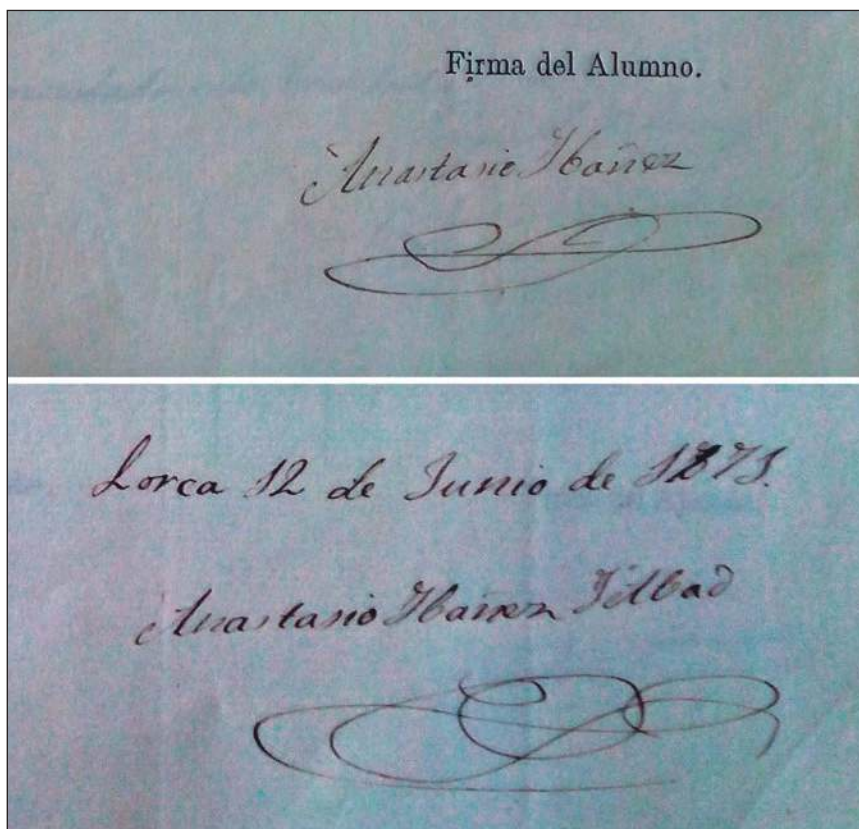 Firma del Alumno.
Anastasio Ibañez
Lorca 12 de Junio de 1871.
Anastasio Ibañez